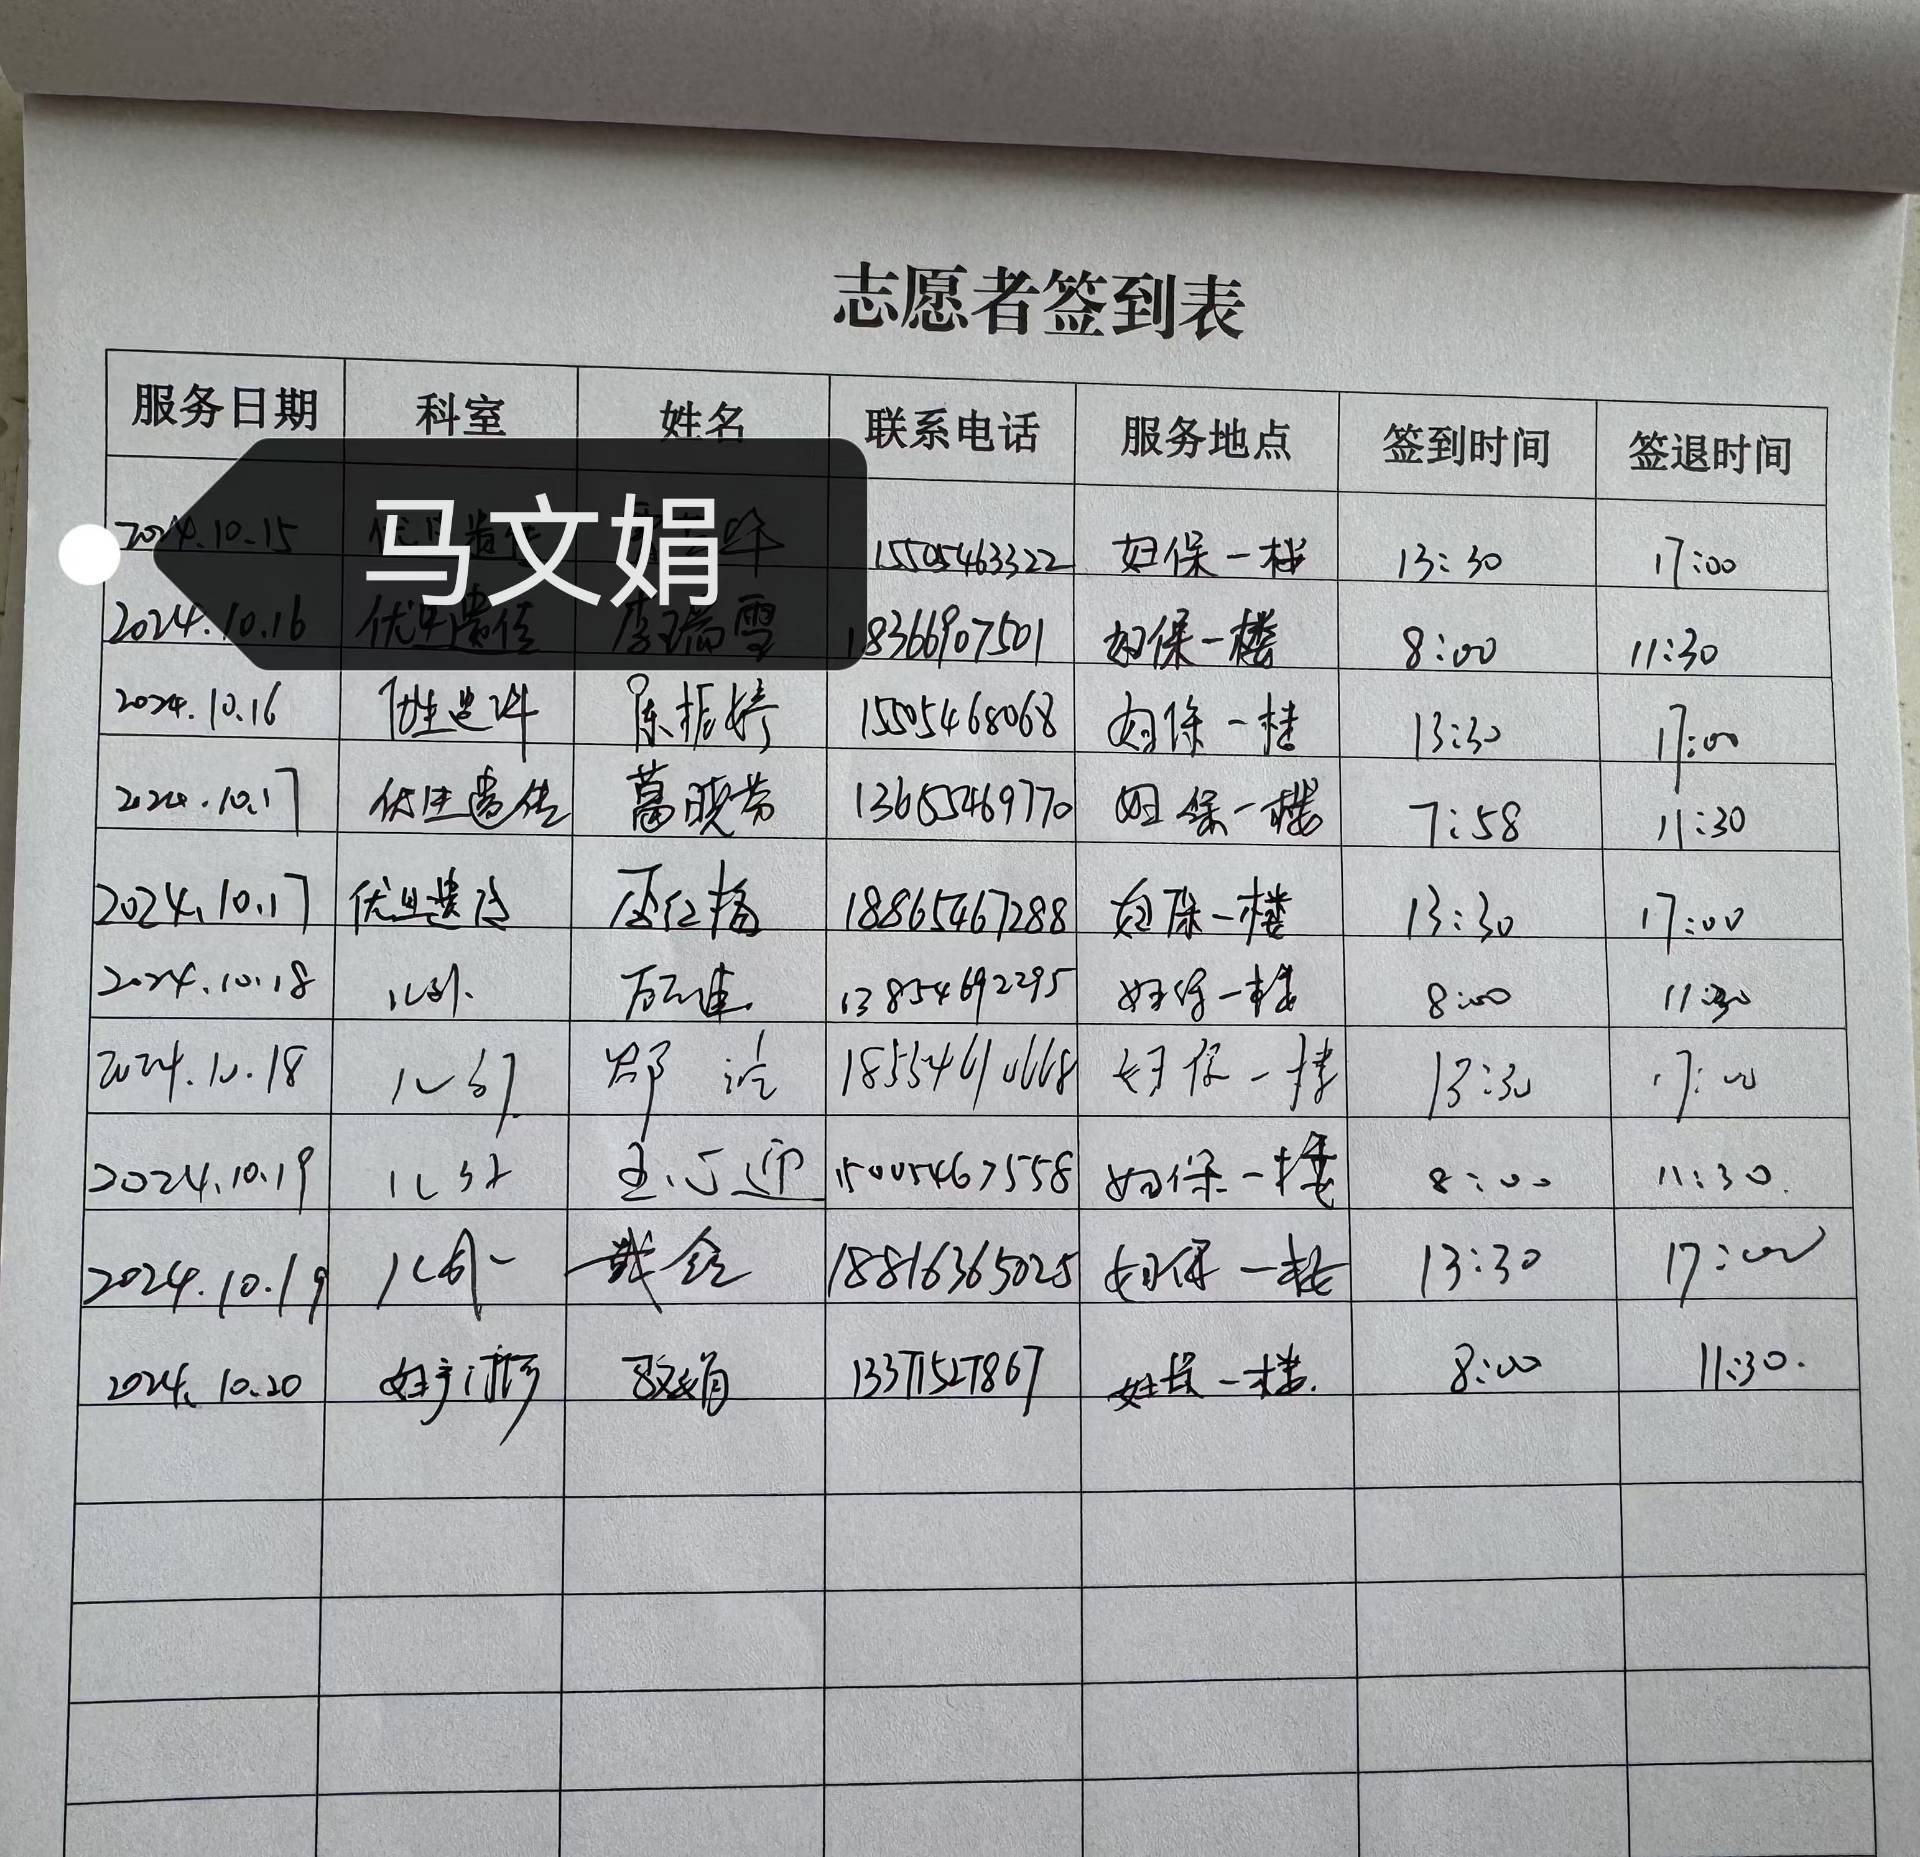 志愿者签到表
服务日期 科室 姓名 联系电话 服务地点 签到时间 签退时间
马文娟
2024.10.15 15505463322 妇保一楼 13:30 17:00
2024.10.16 优生遗传 李瑞雪 18366907501 妇保一楼 8:00 11:30
2024.10.16 陈振婷 15505468068 妇保一楼 13:30 17:00
2024.10.17 优生遗传 葛晓芳 13655469770 妇保一楼 7:58 11:30
2024.10.17 优生遗传 18865467288 妇保一楼 13:30 17:00
2024.10.18 儿外 13854692295 妇保一楼 8:00 11:30
2024.10.18 儿外 妇保一楼 13:30 17:00
2024.10.19 儿外 王心迎 15005467558 妇保一楼 8:00 11:30
2024.10.19 儿外 18816365025 妇保一楼 13:30 17:00
2024.10.20 马文娟 13371527867 妇保一楼 8:00 11:30